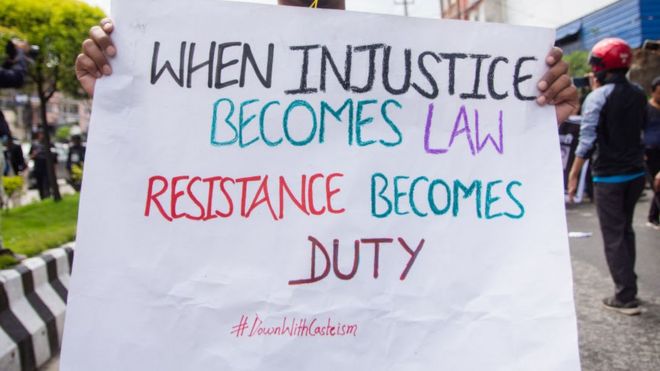 WHEN INJUSTICE
BECOMES LAW
RESISTANCE BECOMES
DUTY
#DownWithCasteism